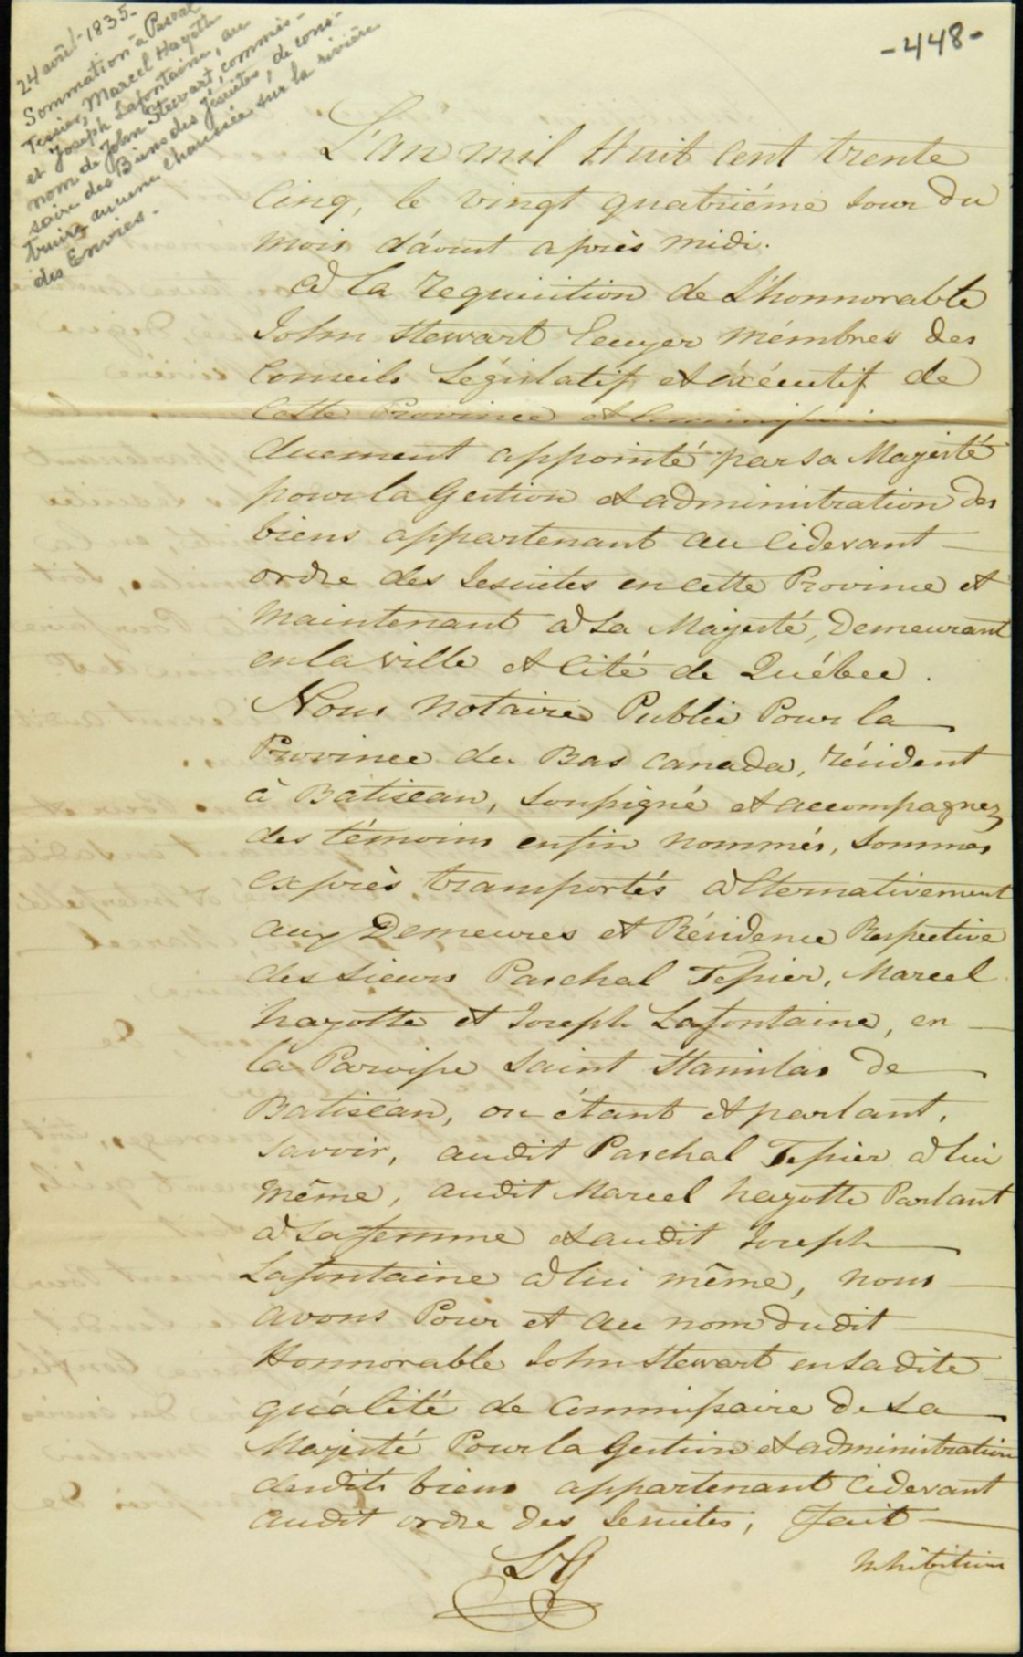 -448-
24 août-1835-
Sommation à Pascal
Tessier, Marcel Hayotte
et Joseph Lafontaine, au
nom de John Stewart, commis-
saire des Biens des Jésuites, de cons-
truire aucune chaussée sur la rivière
des Envies.
L'an mil Huit cent trente
Cinq, le vingt quatriéme Jour du
mois d'áout après midi.
A la requisition de L'honnorable
John Stewart Ecuyer mémbres des
Conseils Législatif et éxécutif de
Cette Province et Commissaire
duement appointé par sa Majesté
pour la Gestion et administration des
biens appartenant au Cidevant
ordre des Jesuites en cette Province et
Maintenant à Sa Majesté, Demeurant
en la ville et Cité de Québec.
Nous Notaire Public Pour la
Province du Bas Canada, résident
à Batiscan, Soussigné et accompagnez
des témoins enfin nommés, Sommes
exprès transportés alternativement
aux Demeures et Résidence Respective
des Sieurs Paschal Tessier, Marcel
hayotte et Joseph Lafontaine, en
la Paroisse Saint Stanislas de
Batiscan, ou étant et parlant,
Savoir, audit Paschal Tessier à lui
même, audit Marcel hayotte Parlant
à Sa femme et audit Joseph
Lafontaine à lui même, nous
avons Pour et au nom dudit
Honnorable John Stewart en Sa dite
quálité de Commissaire de Sa
Majesté Pour la Gestion et administration
desdits biens appartenant Cidevant
audit ordre des Jesuites, fait
LG
inhibition